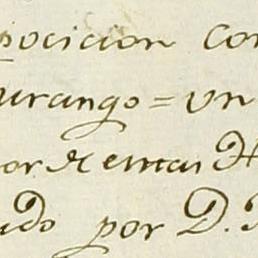 posicion con
urango = un
or Rentas H
ado por D.